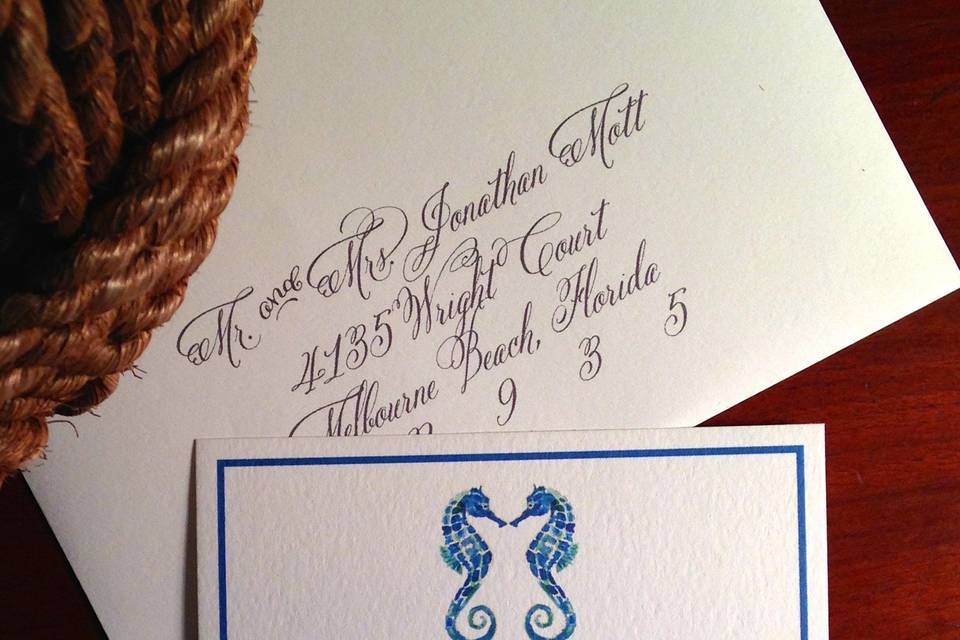 Mr. and Mrs. Jonathan Mott
4135 Wright Court
Melbourne Beach, Florida
9 3 5